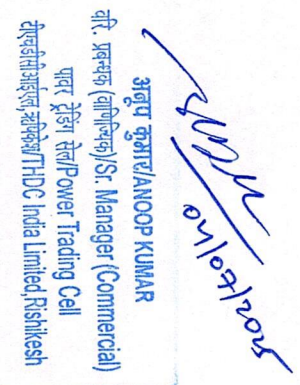 04/07/2025
अनूप कुमार/ANOOP KUMAR
वरि. प्रबन्धक (वाणिज्यिक)/Sr. Manager (Commercial)
पावर ट्रेडिंग सेल/Power Trading Cell
टीएचडीसी इंडिया लि., ऋषिकेश/THDC India Limited, Rishikesh